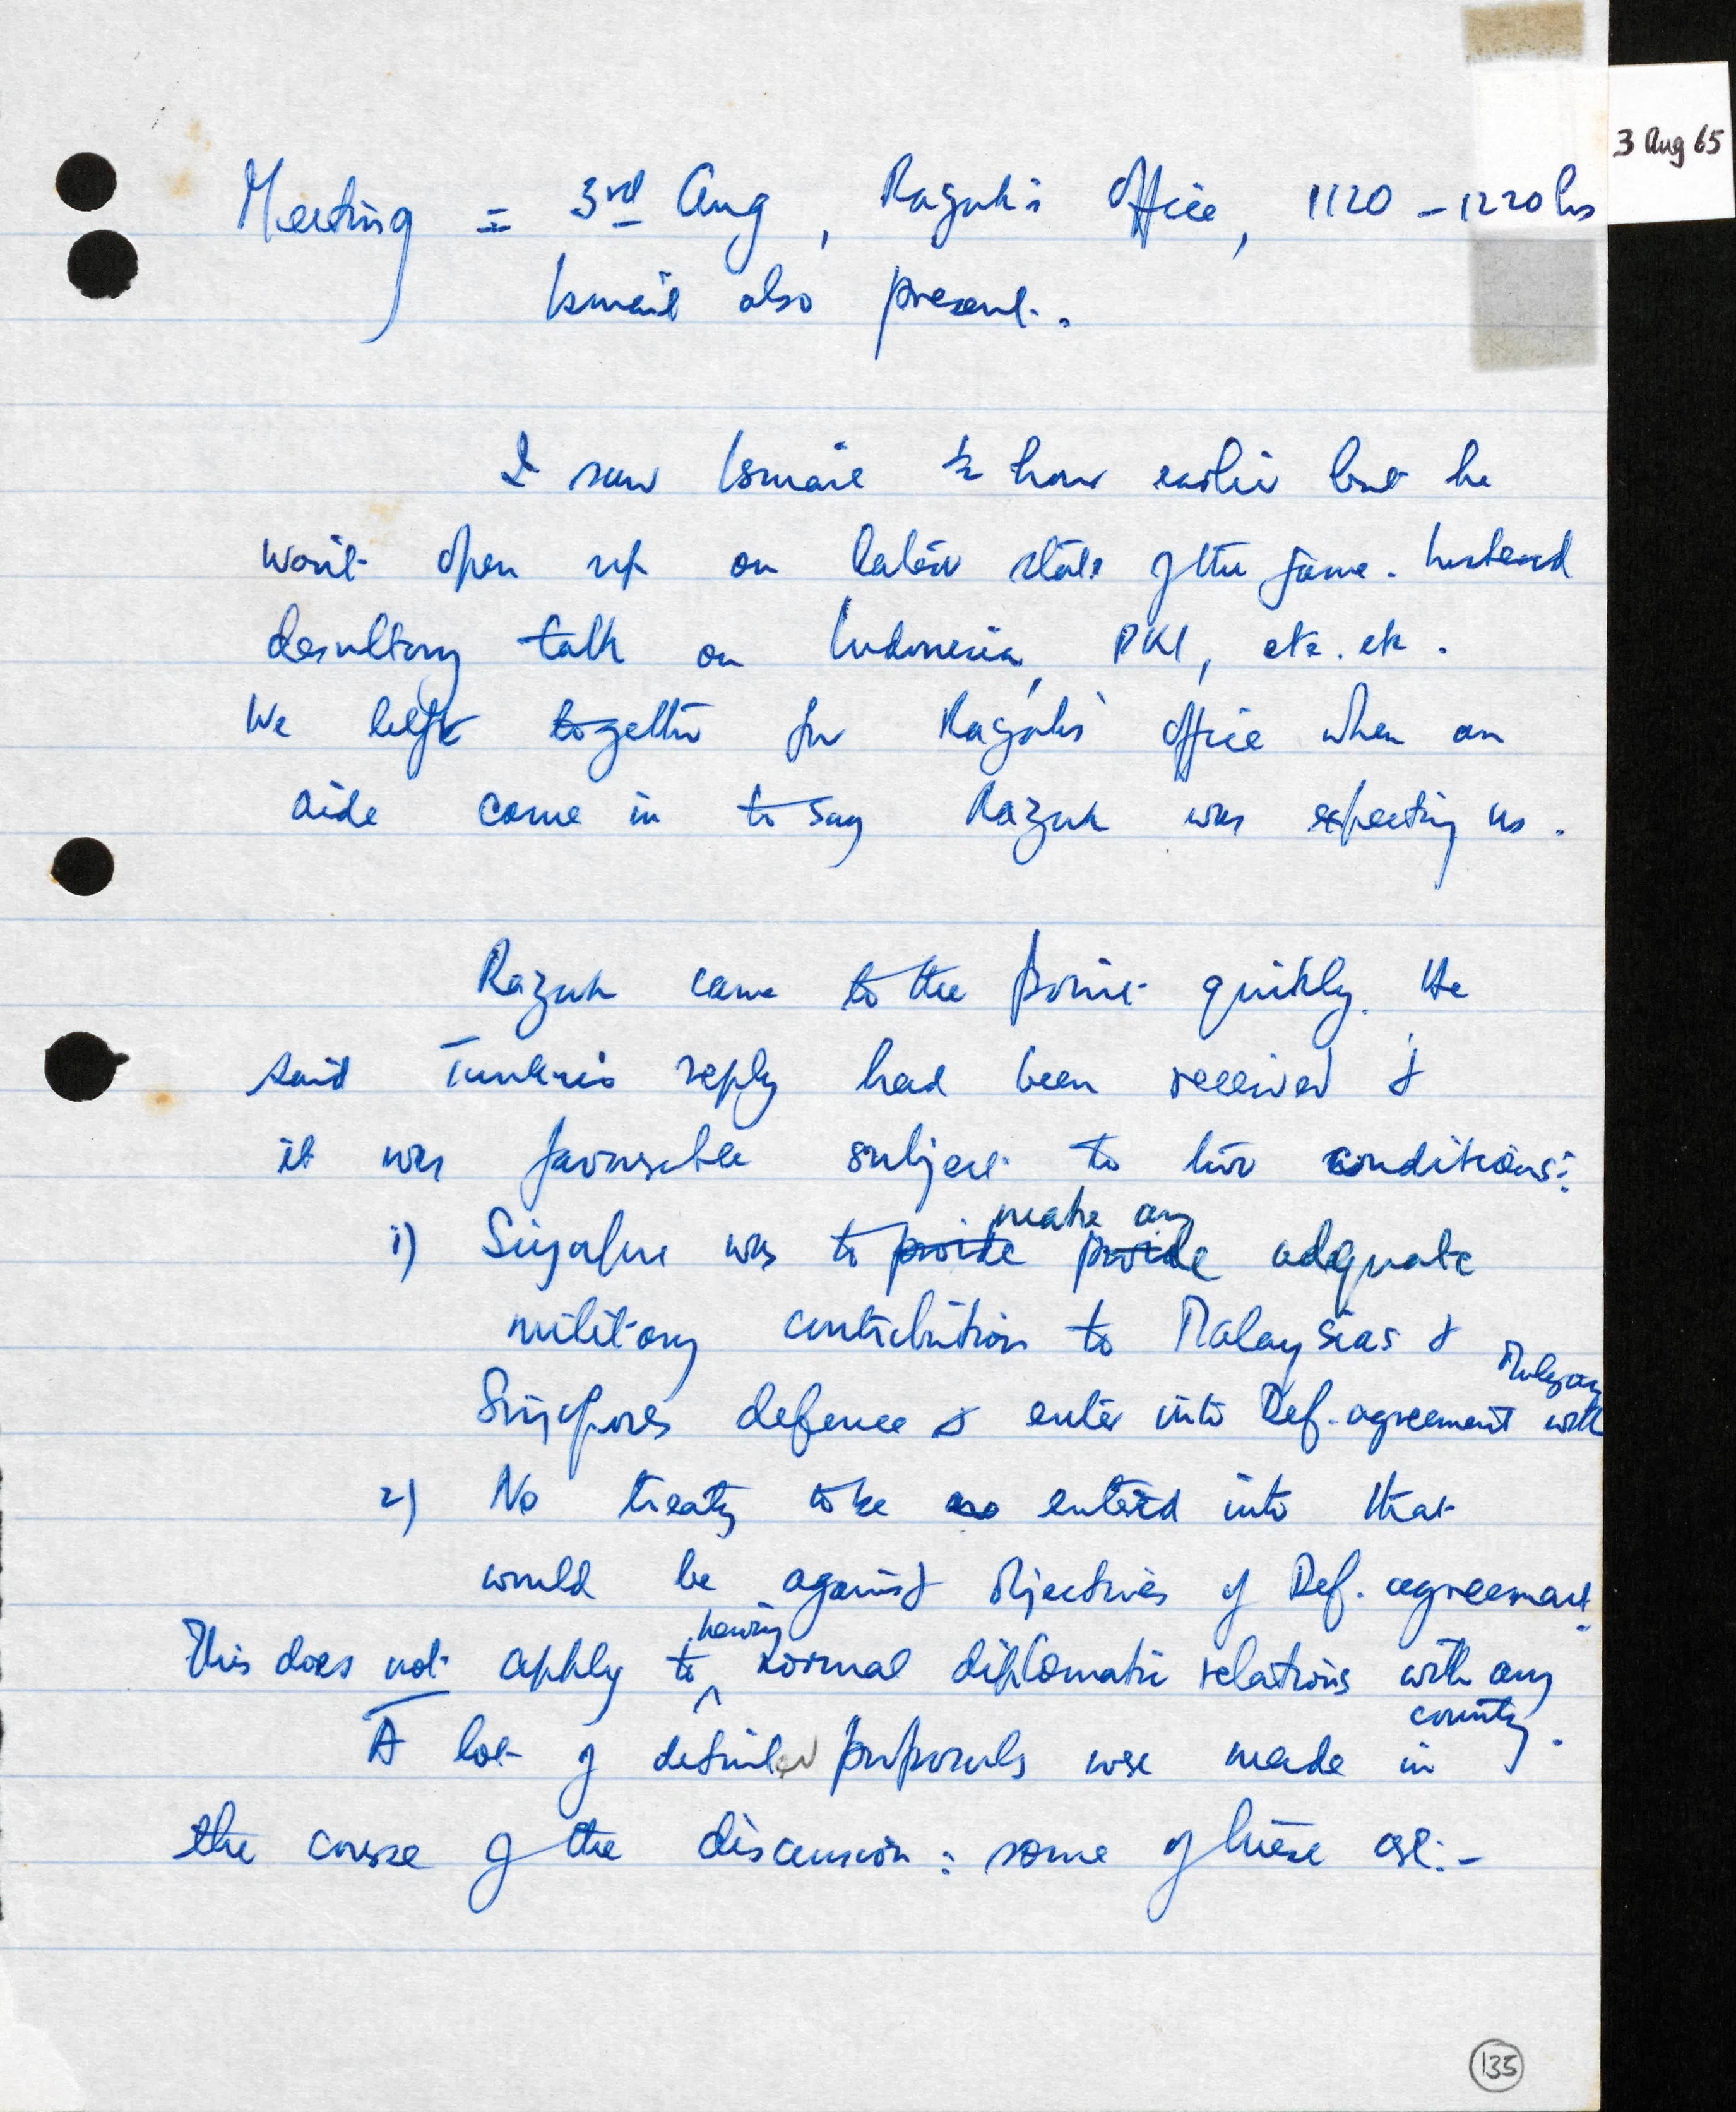 3 Aug 65
Meeting = 3rd Aug, Razak's Office, 1120 - 1220 hrs
Ismail also present.
I saw Ismail ½ hour earlier but he
won't open up on latest state of the game. Instead
desultory talk on Indonesia, PKI, etc. etc.
We left together for Razak's office when an
aide came in to say Razak was expecting us.
Razak came to the point quickly. He
said Tunku's reply had been received &
it was favourable subject to two conditions:
1) Singapore was to provide make an provide adequate
military contribution to Malaysias &
Singapores defence & enter into Def. agreement with Malaya
2) No treaty to be entered into that
would be against objectives of Def. agreement.
This does not apply to having normal diplomatic relations with any
country.
A lot of detailed proposals were made in
the course of the discussion: some of these are:-
135